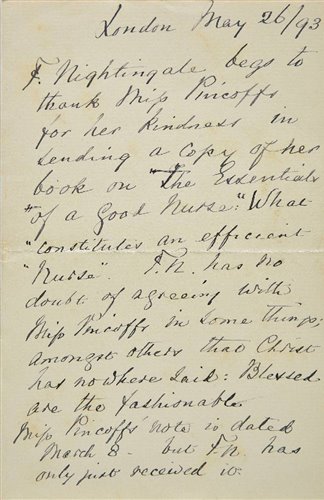 London May 26/93
F. Nightingale begs to
thank Miss Pincoffs
for her kindness in
sending a copy of her
book on "The Essentials
"of a Good Nurse": "What
"constitutes an efficient
"Nurse". F.N. has no
doubt of agreeing with
Miss Pincoffs in some things;
amongst others that Christ
has nowhere said: Blessed
are the fashionable
Miss Pincoffs' note is dated
March 8 - but F.N. has
only just received it.